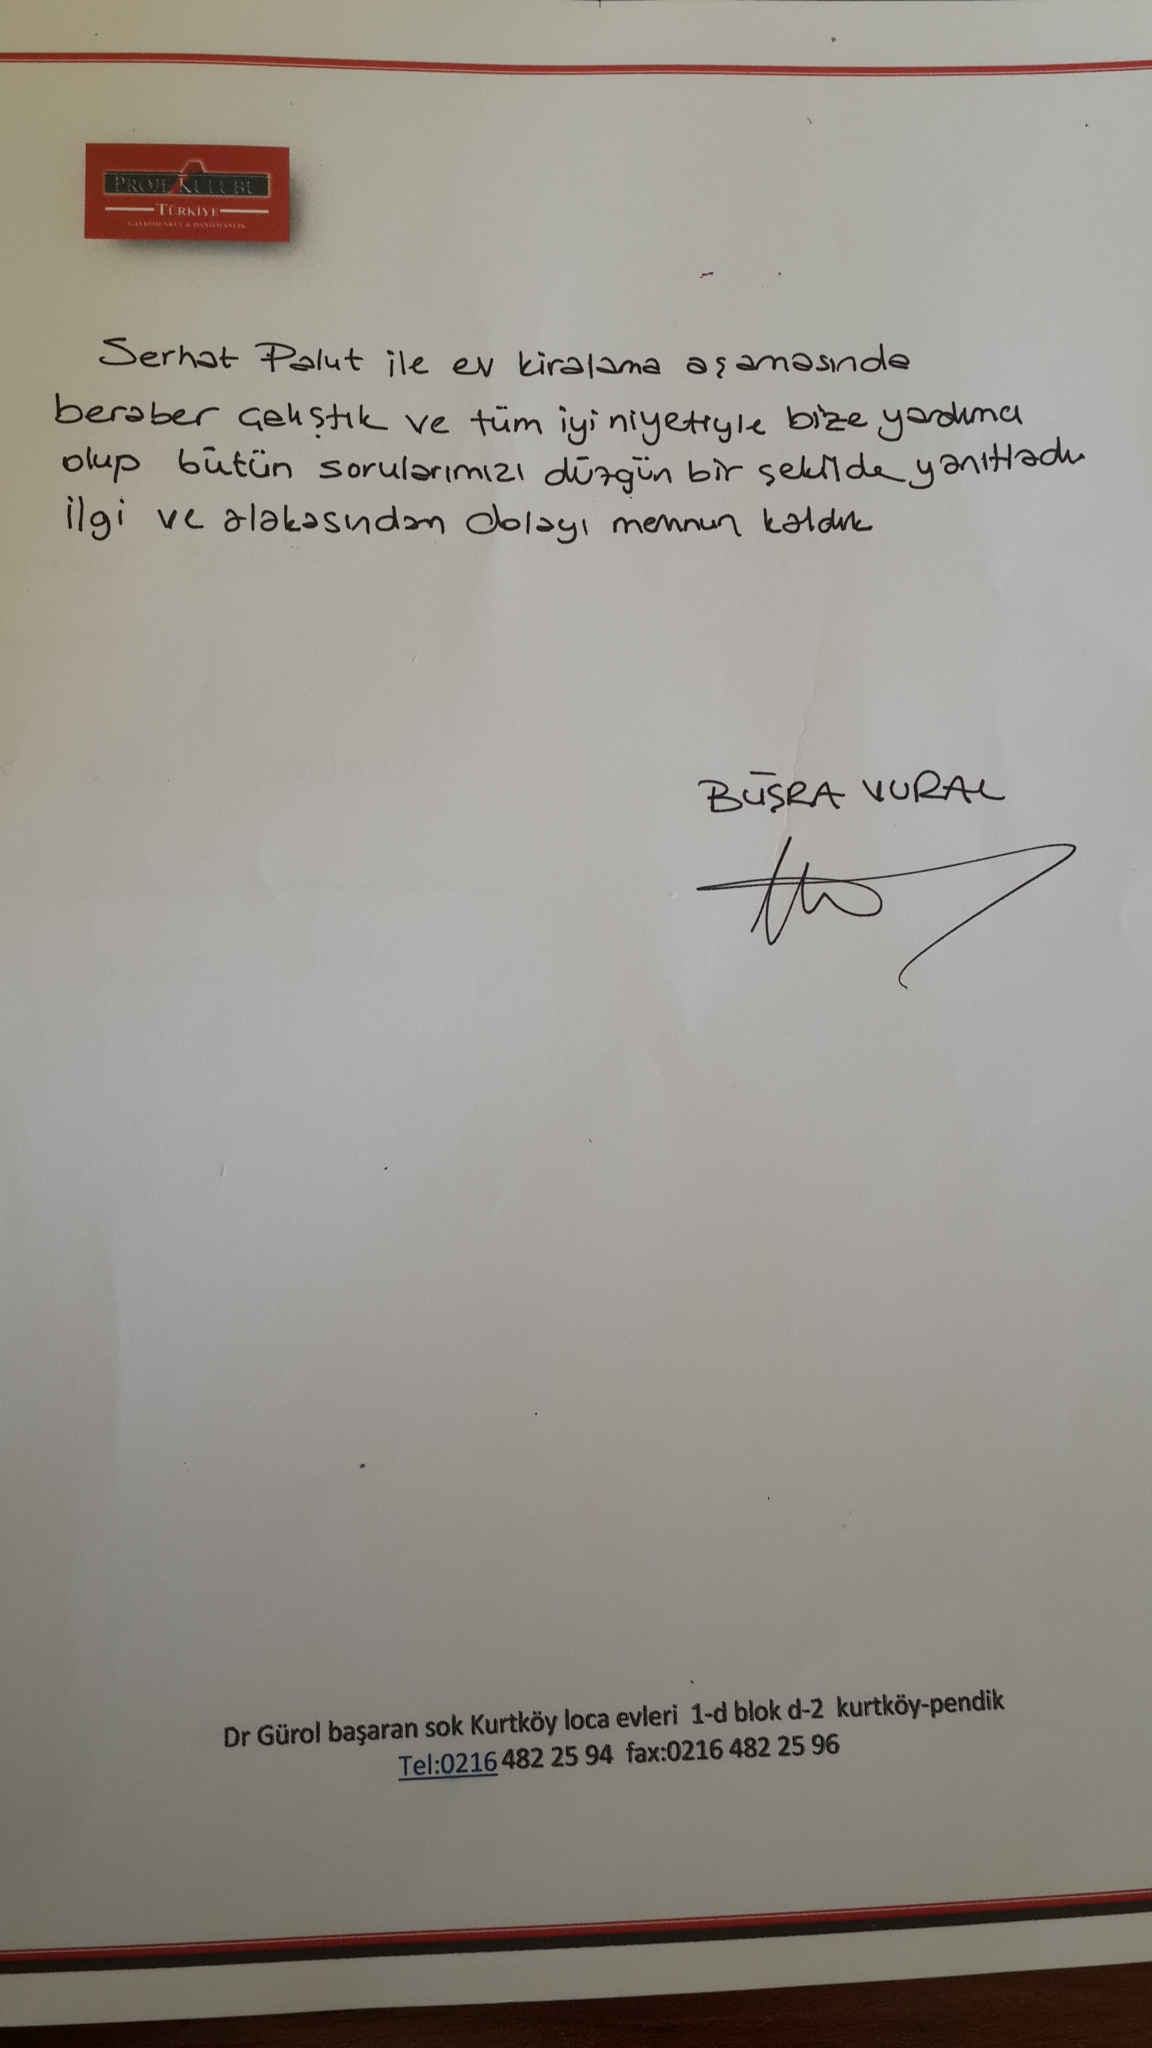 PROJE KULÜBÜ
TÜRKİYE
GAYRİMENKUL & DANIŞMANLIK
Serhat Palut ile ev kiralama aşamasında
beraber çalıştık ve tüm iyi niyetiyle bize yardımcı
olup bütün sorularımızı düzgün bir şekilde yanıtladı.
İlgi ve alakasından dolayı memnun kaldık
BÜŞRA VURAL
Dr Gürol başaran sok Kurtköy loca evleri 1-d blok d-2 kurtköy-pendik
Tel:0216 482 25 94 fax:0216 482 25 96